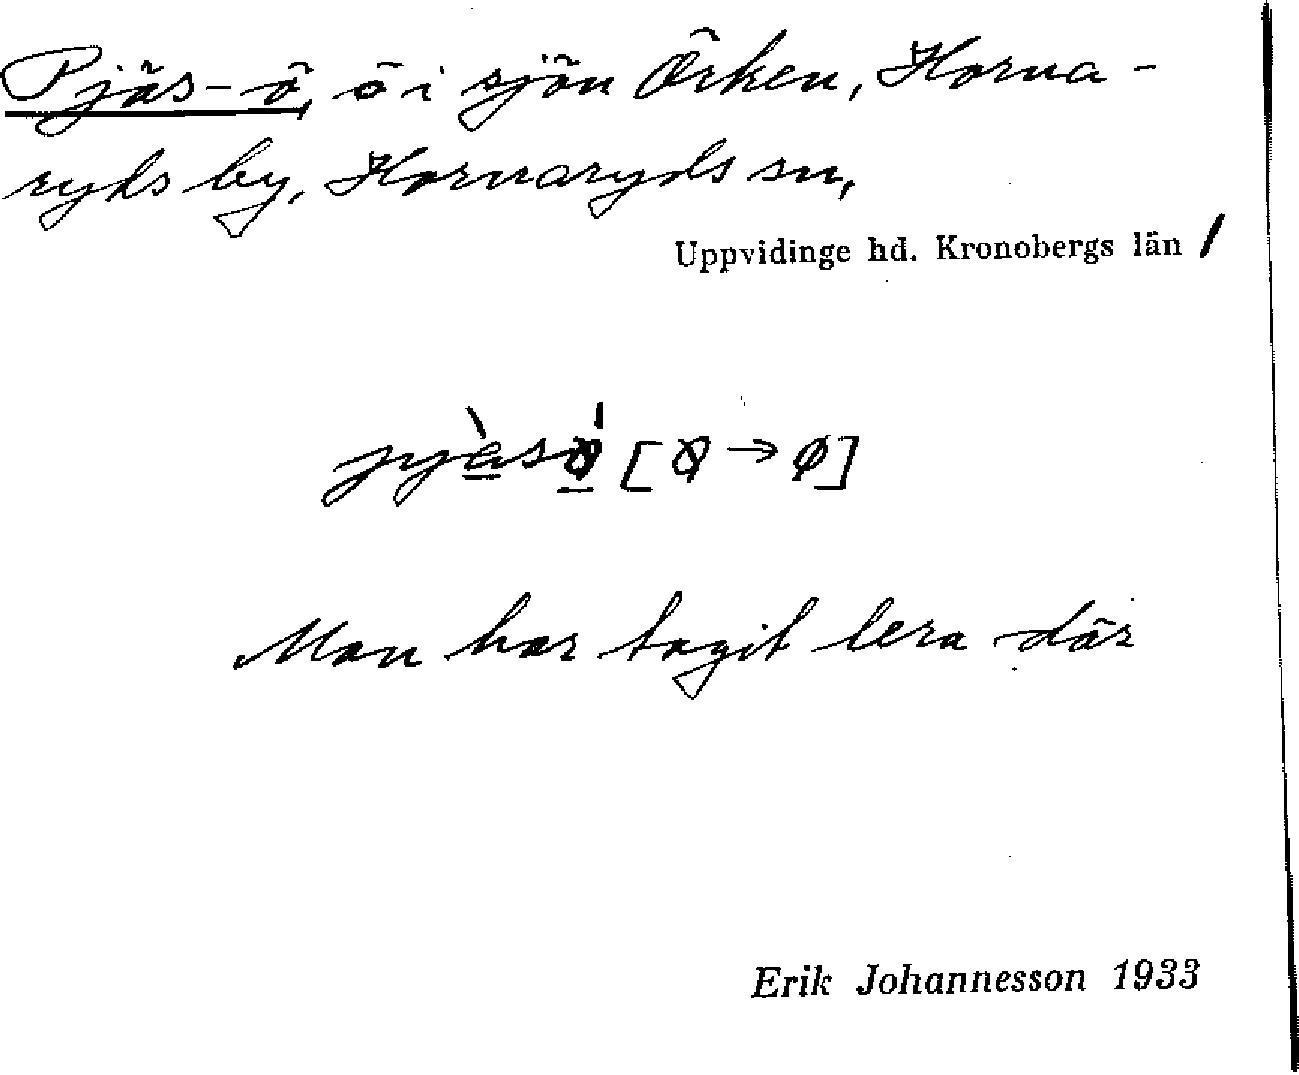 Pjäs-ö, ö i sjön Örken, Horna-
ryds by, Hornaryds sn,
Uppvidinge hd. Kronobergs län
[ꞳØ → ø]
Man har tagit lera där
Erik Johannesson 1933